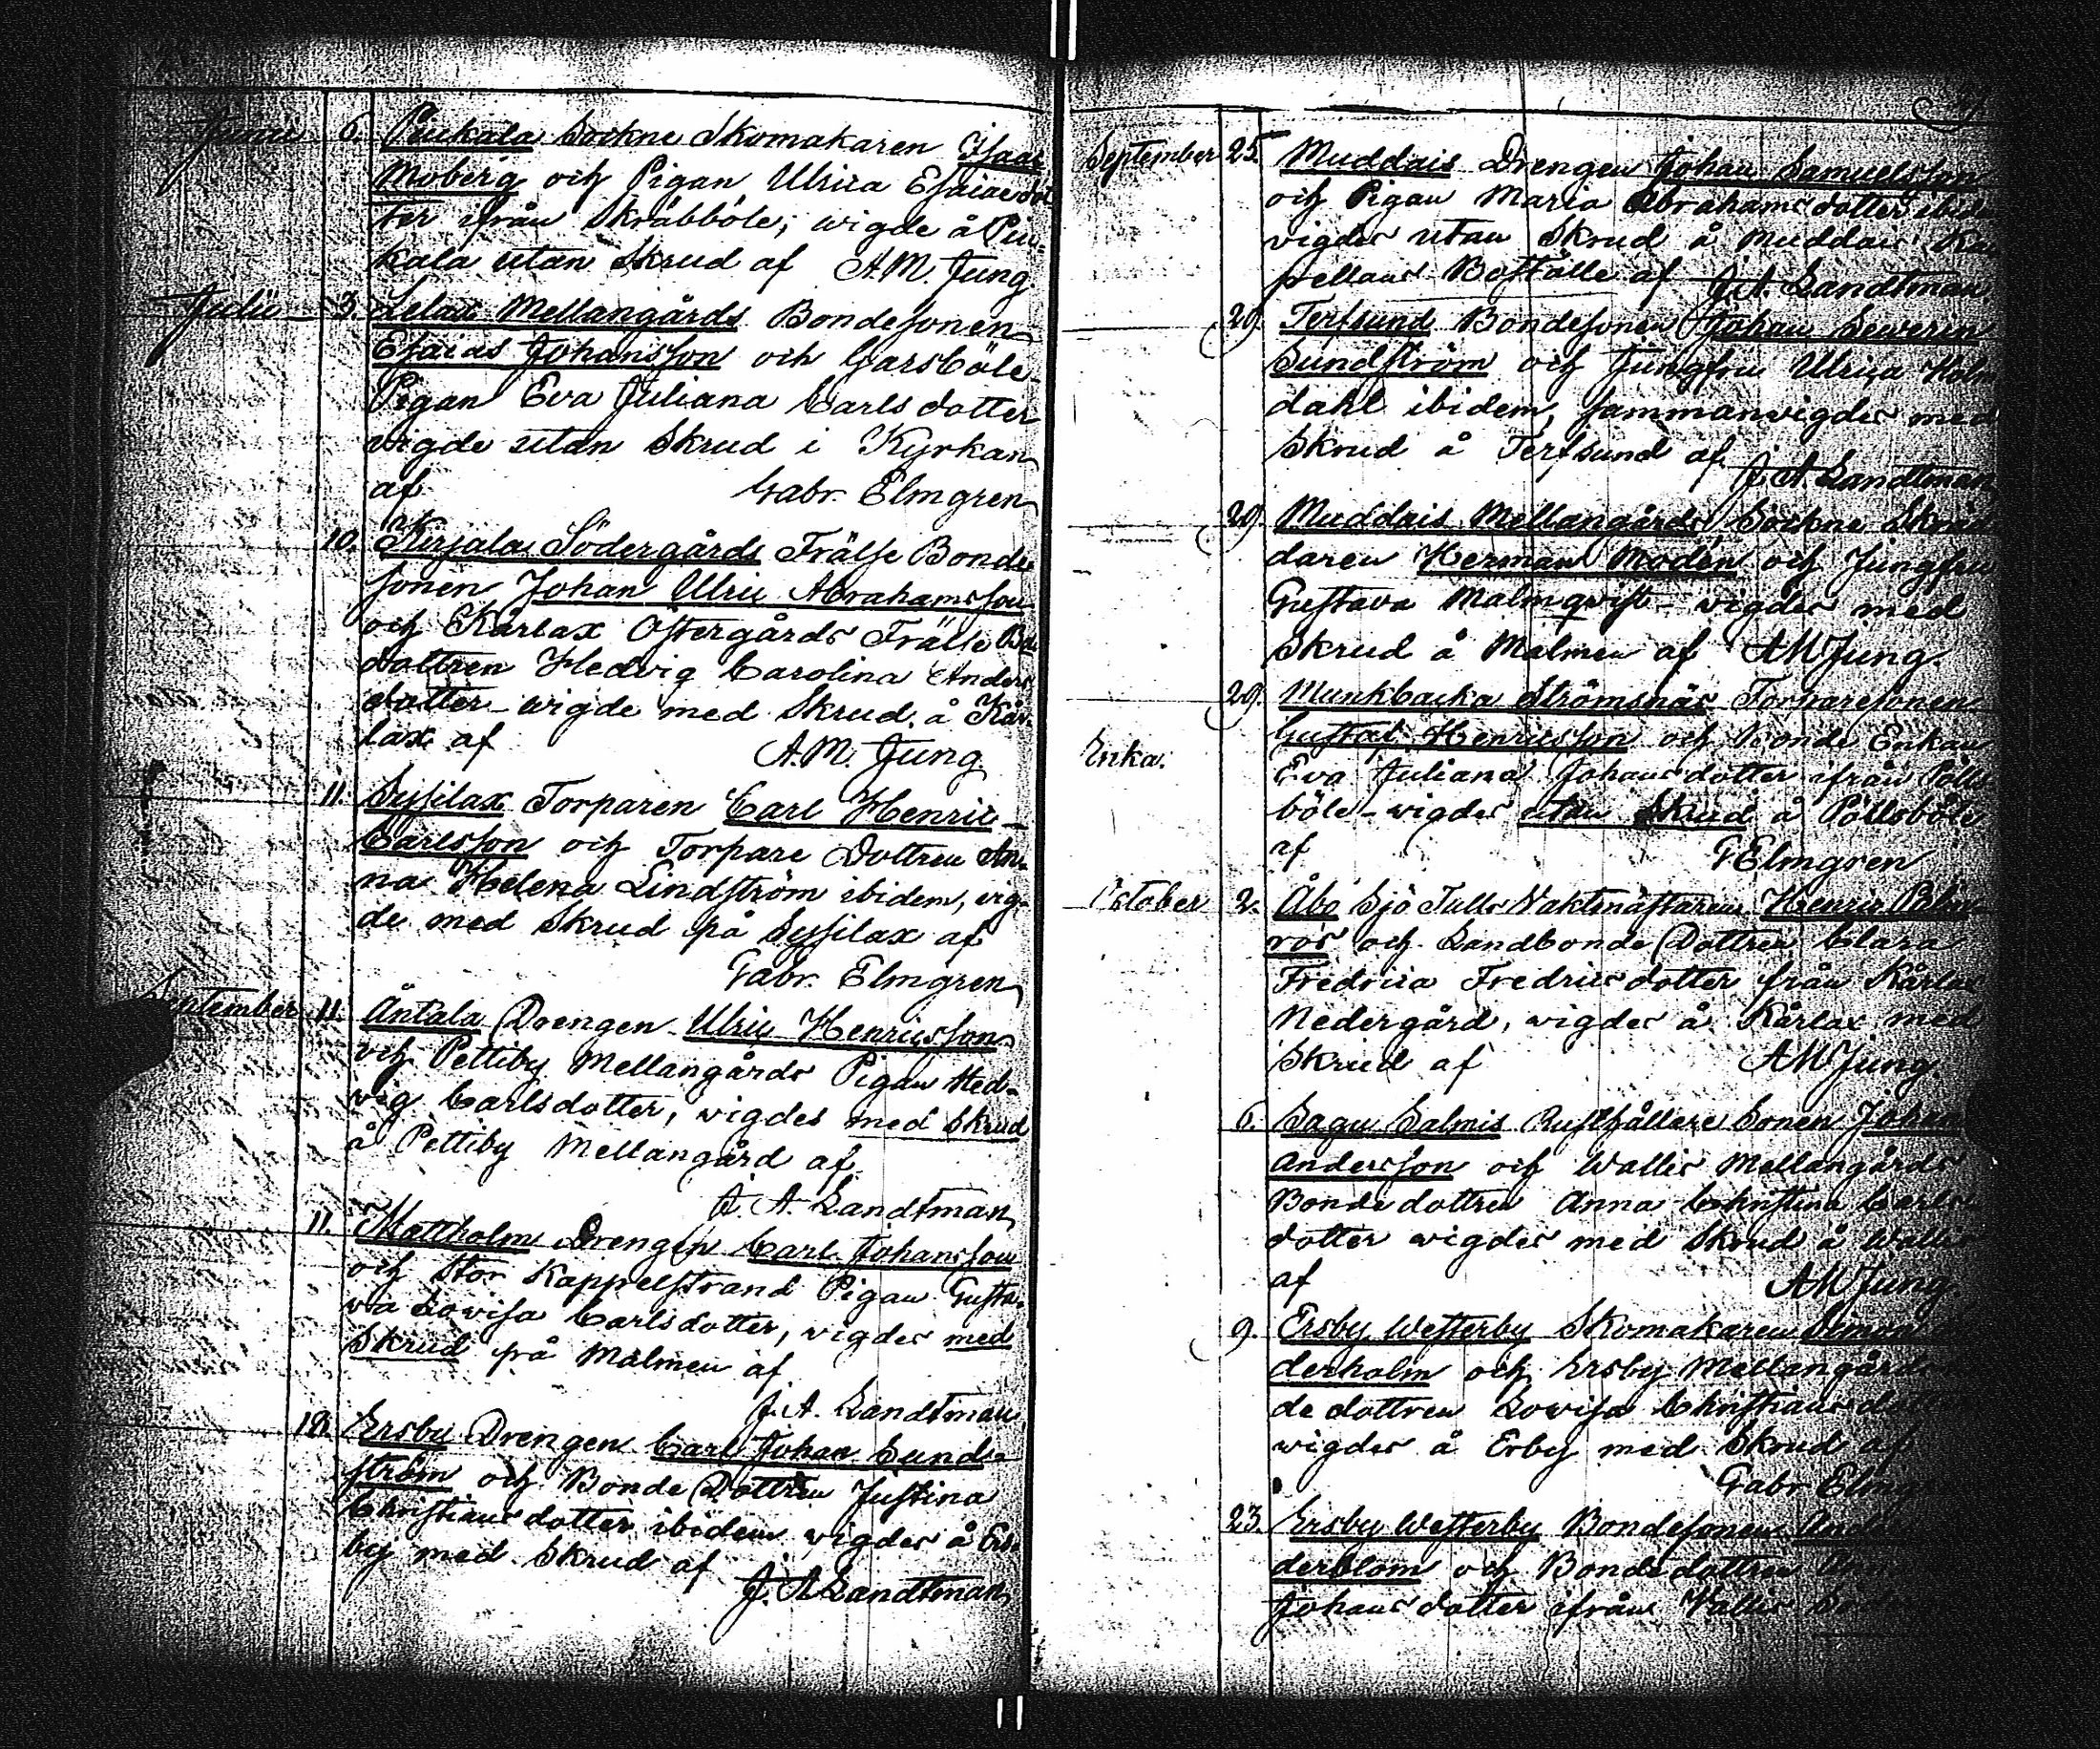 Junii 6. Piukala Sockne Skomakaren Isaac
Moberg och Pigan Ulrica Esaiaedot
ter ifrån Skräbböle; wigde å Piu-
kala utan Skrud af A.M. Jung
Julii 3. Lelax Mellangårds Bondesonen
Esaias Johansson och Garsböle
Pigan Eva Juliana Carlsdotter
wigde utan Skrud i Kyrkan
af Gabr. Elmgren
10. Kirjala Södergårds Frälse Bonde
sonen Johan Ulric Abrahamsson
och Kårlax Östergårds Frälse
dottren Hedvig Carolina Anders
dotter - wigde med Skrud å Kår-
lax af A.M. Jung
11. Sysilax Torparen Carl Henric
Carlsson och Torpare Dottren An-
na Helena Lindström ibidem, vig-
de med Skrud på Sysilax af
Gabr. Elmgren
September 11. Äntala Drengen Ulric Henricsson
och Pettiby Mellangårds Pigan Hed-
vig Carlsdotter, vigdes med Skrud
å Pettiby Mellangård af
J. A. Landtman
11. Mattholm Drengen Carl Johansson
och Stor Kappelstrand Pigan Gusta-
va Lovisa Carlsdotter, vigdes med
Skrud på Malmen af
J. A. Landtman
12. Ersby Drengen Carl Johan Sund-
ström och Bonde Dottren Justina
Christiansdotter ibidem vigdes å Ers-
by med Skrud af
J. A Landtman
September 25. Muddais Drengen Johan Samuelsson
och Pigan Maria Abrahamsdotter
vigdes utan Skrud å Muddais Ka
pellans Boställe af J.A. Landtman
29. Terfsund Bondesonen Johan Sewerin
Sundström och Jungfru Ulrica Holm
dahl ibidem, sammanvigdes med
Skrud å Terfsund af J. A Landtman
29. Muddais Mellangårds Sockne Skräd
daren Herman Modén och Jungfru
Gustava Malmqvist - vigdes med
Skrud å Malmen af AM Jung.
29. Munkbacka Strömsnäs Torparesonen
Gustaf Henricsson och Bonde Enkan
Enka.
Eva Juliana Johansdotter ifrån Pölls
böle - vigdes utan Skrud å Pöllsböle
af GElmgren
October 2. Åbo Sjö Tulls Vaktmästaren Henric
ros och Landbonde Dottren Clara
Fredrica Fredricsdotter från Kårlax
Nedergård, vigdes å Kårlax med
Skrud af AM Jung.
6. Sagu Salmis Rusthållare Sonen Johan
Andersson och Wallis Mellangårds
Bondedottren Anna Christina Carls-
dotter vigdes med Skrud å Wallis
af AM Jung
9. Ersby Westerby Skomakaren Simon
derholm och Ersby Mellangårds
de dottren Lovisa Christians
vigdes å Erby med Skrud af
Gabr Elmg
23. Ersby Westerby Bondesonen
derblom och Bondedottren
Johansdotter ifrån Wallis